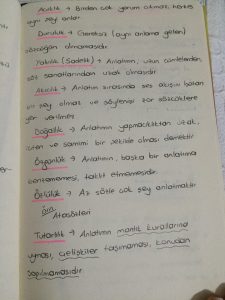 Açıklık → Birden çok yorum çıkmaz, herkes
aynı şey anlar
Duruluk → Gereksiz (aynı anlama gelen)
sözcüğün olmamasıdır.
Yalınlık (Sadelik) → Anlatımın, uzun cümlelerden,
söz sanatlarından uzak olmasıdır
Akıcılık → Anlatım sırasında ses akışını bozan
bir şey olmaz ve söyleyişi zor sözcüklere
yer verilmez
Doğallık → Anlatımın yapmacıklıktan uzak,
içten ve samimi bir şekilde olması demektir
Özgünlük → Anlatımın, başka bir anlatıma
benzememesi, taklit etmemesidir.
Özlülük → Az sözle çok şey anlatmaktır
örn: Atasözleri
Tutarlılık → Anlatımın mantık kurallarına
uyması, çelişkiler taşımaması, konudan
sapılmamasıdır